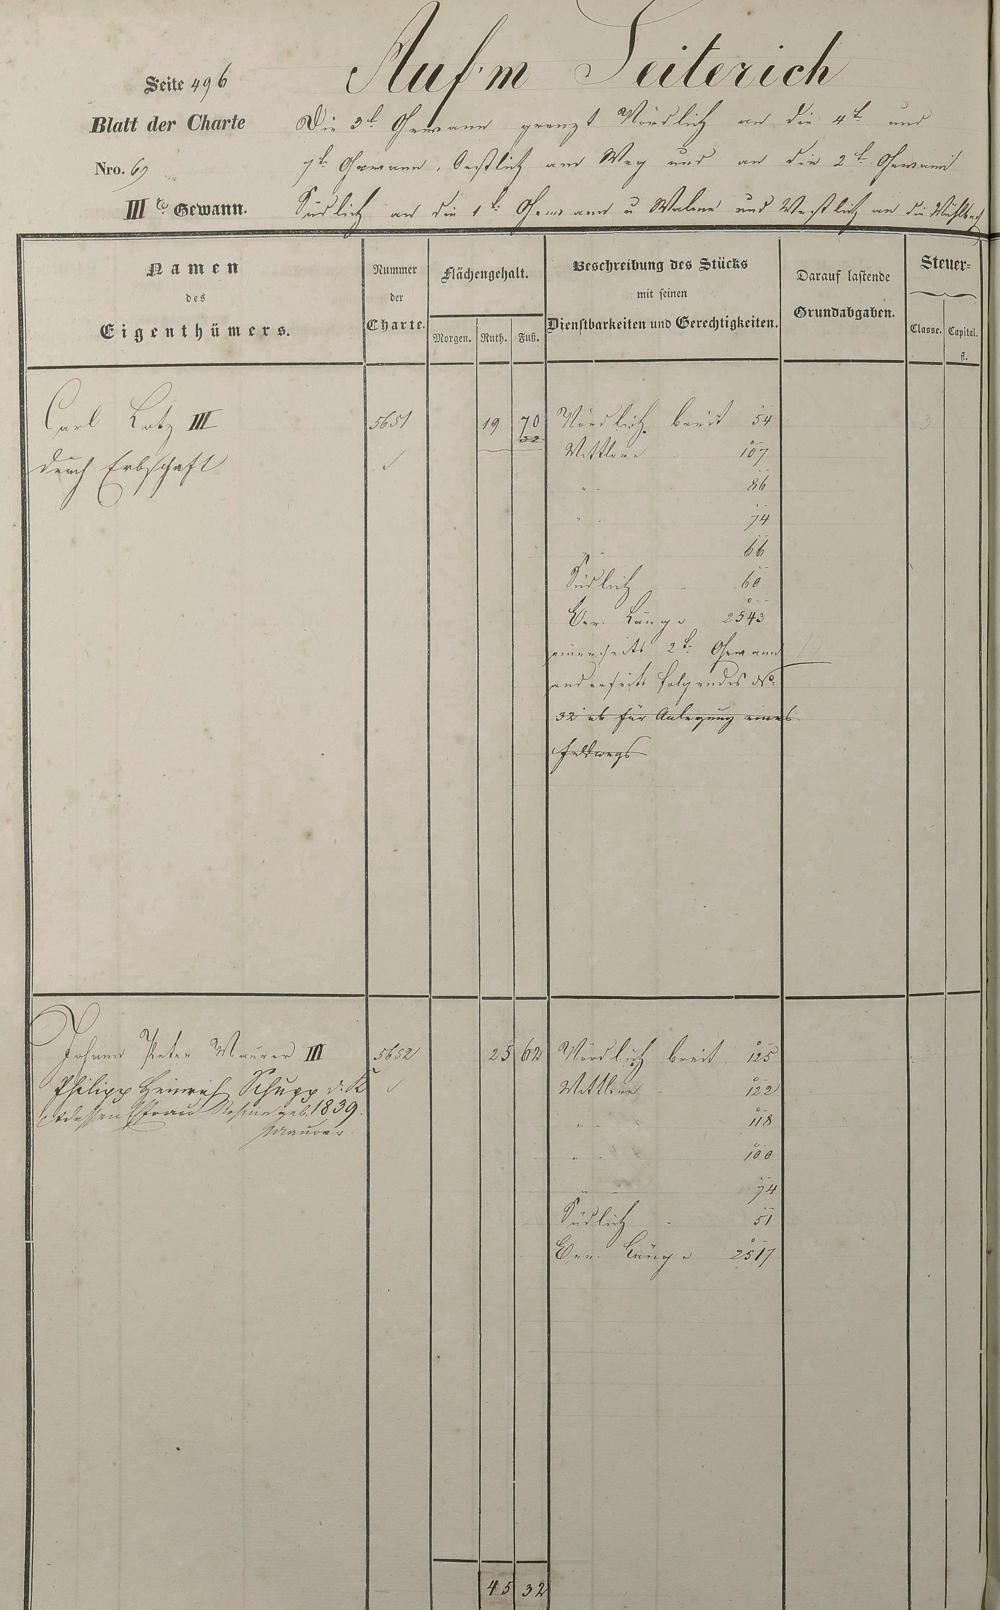 Auf'm Seiterich
Seite 496
Blatt der Charte
Nro. 69
III te Gewann.
Die 3te Gewann grenzt Nördlich an die 4te und
7te Gewann, Oestlich am Weg und an die 2te Gewann
Südlich an die 1te Gewann u und Westlich an die Mühlbach
Namen
des
Eigenthümers.
Nummer
der
Charte.
Flächengehalt.
Morgen. Ruth. Fuß.
Beschreibung des Stücks
mit seinen
Dienstbarkeiten und Gerechtigkeiten.
Darauf lastende
Grundabgaben.
Steuer-
Classe. Capital.
fl.
Carl Lotz III 5651 19 70 Nördlich breit 54
32
durch Erbschaft Mittlere 107
" 86
" 74
" 66
Südlich 60
Ger. Länge 2543
einerseits 2te Gewann
anderseits folgendes No.
32 ab für Anlegung eines
Feldwegs
Johann Peter Maurer III 5652 25 62 Nördlich breit 125
Philipp Heinrich Schupp d. R. Mittlere 122
dessen Efrau geb. 1839. " 118
Maurer " 100
" 74
Südlich 51
Ger. Länge 2517
45 32